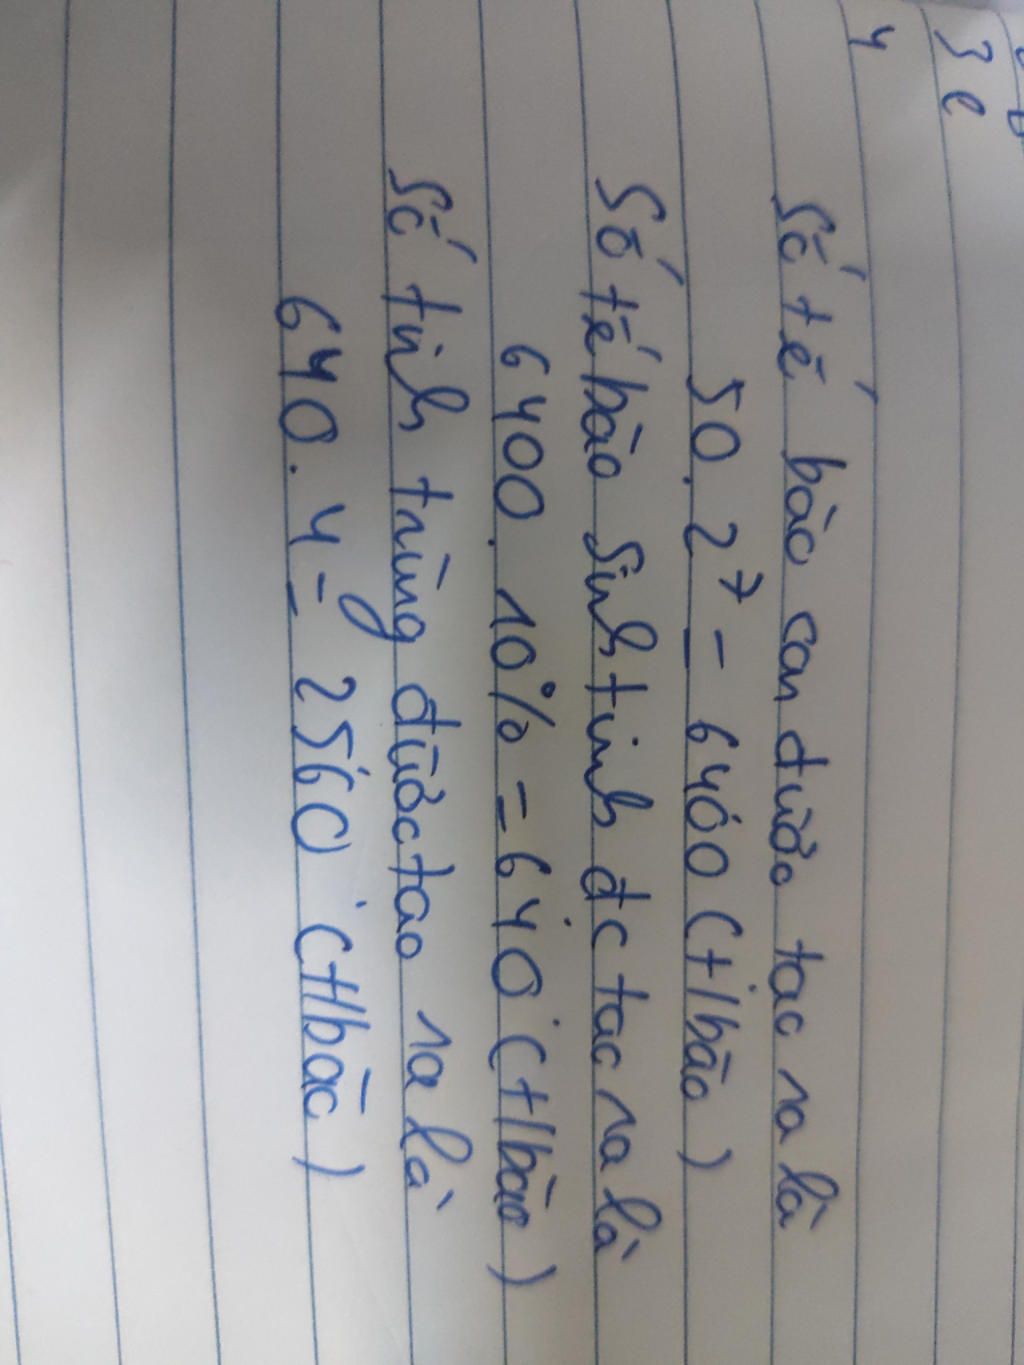 3 e
4
Số tế bào con được tạo ra là
50. 2⁷ = 6400 (t/bào)
Số tế bào sinh tinh đc tạo ra là
6400. 10% = 640 (t/bào)
Số tinh trùng được tạo ra là
640. 4 = 2560 (t/bào)